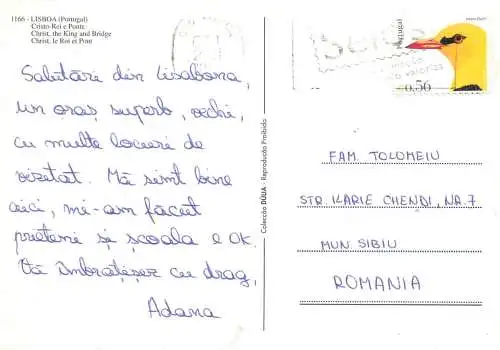 1166 - LISBOA (Portugal)
Cristo-Rei e Ponte
Christ, the King and Bridge
Christ, le Roi et Pont
Salutări din Lisabona,
un oraș superb, vechi,
cu multe locuri de
vizitat. Mă simt bine
aici, mi-am făcut
prieteni și școala e OK.
Vă îmbrățișez cu drag,
Adana
Colecção DÚLIA - Reprodução Proibida
Portugal
0,56
FAM. TOLOMEIU
STR. ILARIE CHENDI, NR. 7
MUN. SIBIU
ROMANIA